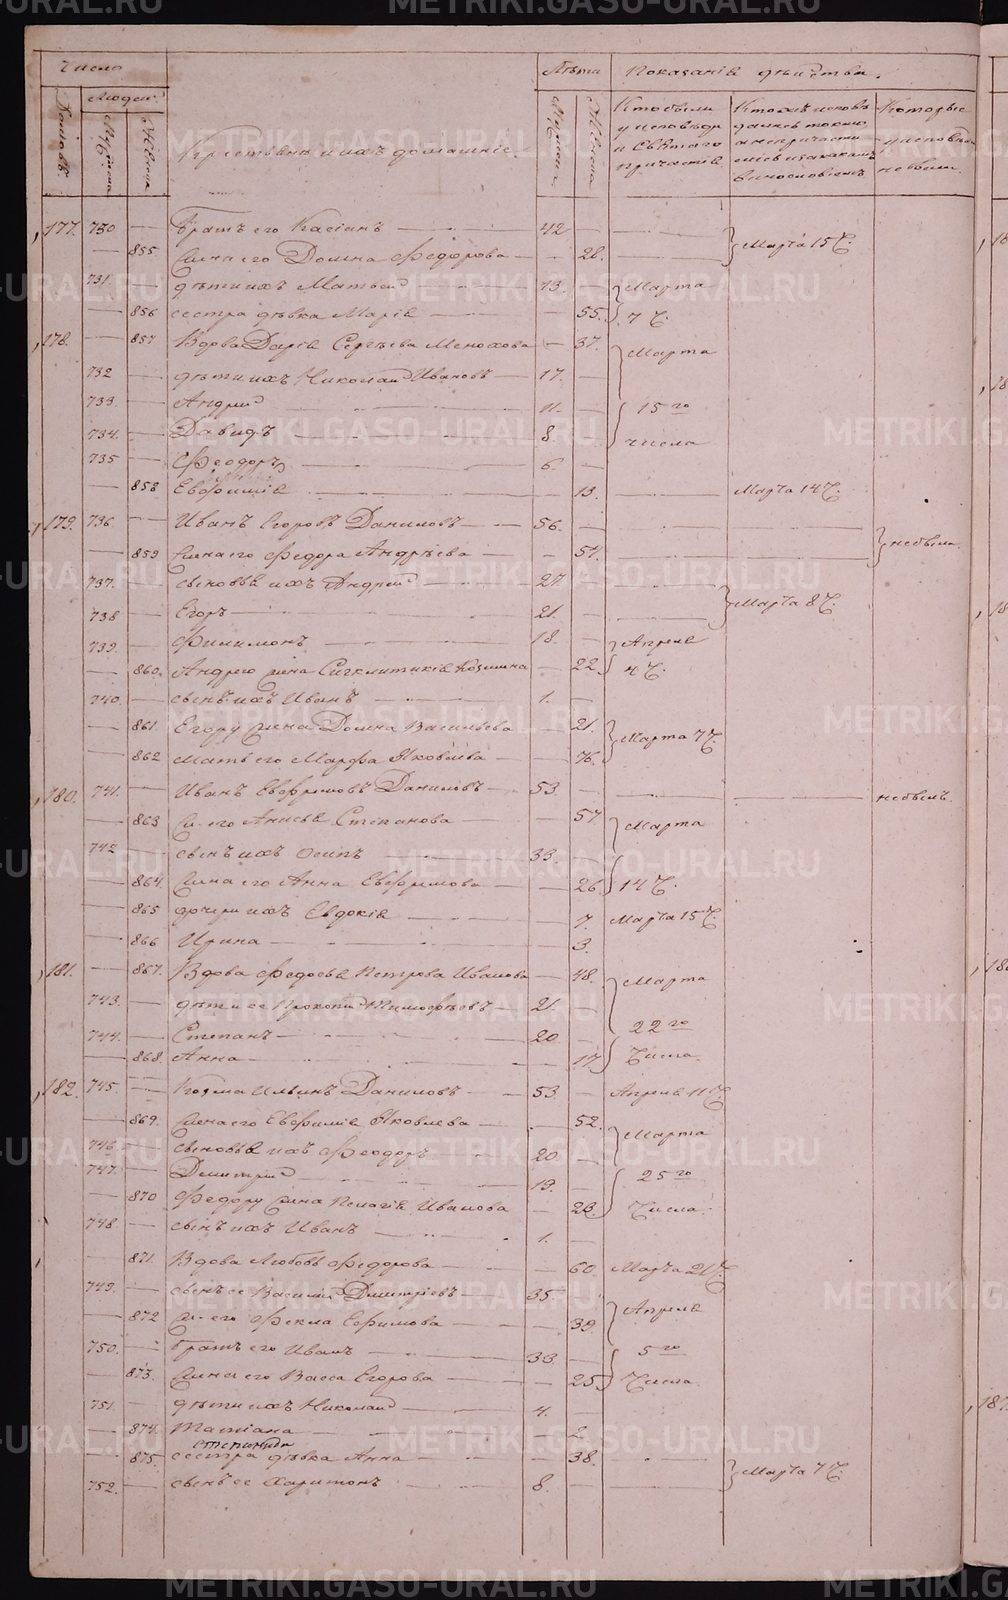 Число
Людей.
Домовъ
Мужеска
Женска
Крестьяне и ихъ домашніе.
Лѣта
Мужеска
Женска
Показаніе дѣйства.
Кто были у исповѣди и Святаго причастія
Которые у исповѣди не были.
177. 730 — Братъ его Касіанъ — 42 — Марта 15 Ч.
— 855. Жена его Домна Федорова — 28.
731. — дѣти ихъ Матвей — 13. — Марта
— 856 сестра дѣвка Марія — 55. 7 Ч.
178. — 857 Вдова Дарія Сергѣева — 37. Марта
732 — дѣти ихъ Николай Ивановъ — 17. —
733. — Андрей — 11. — 15го
734. — Давидъ — 8. — числа
735 — Феодоръ — 6. —
— 858 Евфимія — 13. — Марта 14 Ч.
179. 736. — Иванъ Егоровъ Даниловъ — 56. —
— 859 Жена его Федора Андрѣева — 51. — небыли.
737. — сыновья ихъ Андрей — 27 — Марта 8 Ч.
738 — Егоръ — 21. —
739. — Филимонъ — 18. — Апрѣля
— 860. Андрея жена Сигклитикія — 22. 4 Ч.
740. — сынъ ихъ Иванъ — 1. —
— 861. Егору жена Домна Васильева — 21. Марта 7 Ч.
— 862 мать его Марфа Яковлева — 76.
180. 741. — Иванъ Евфимовъ Даниловъ — 53. — небылъ.
— 863 Ж. его Анисья Степанова — 57. Марта
742 — сынъ ихъ Осипъ — 33. —
— 864. Жена его Анна Евфимова — 26. 14 Ч.
— 865 дочери ихъ Евдокія — 7. Марта 15 Ч.
— 866 Ирина — 3.
181. — 867. Вдова Федосья Петрова Иванова — 48. Марта
743. — дѣти ее Прокопій Тимофѣевъ — 21. —
744. — Степанъ — 20 — 22го
— 868. Анна — 17. Числа.
182. 745. — Козма Ильинъ Даниловъ — 53. — Апрѣля 11 Ч.
— 869. Жена его Евфимія Яковлева — 52. Марта
746 — сыновья ихъ Феодоръ — 20. —
747. — Дмитрій — 19. — 25го
— 870 Федору жена Пелагія Иванова — 23. Числа.
748. — сынъ ихъ Иванъ — 1. —
— 871. Вдова Любовь Федорова — 60. Марта 21 Ч.
749. — сынъ ее Василій Дмитріевъ — 35 — Апрѣля
— 872 Ж. его Фекла Ефимова — 39.
750. — братъ его Иванъ — 33. — 5го
— 873. Жена его Васса Егорова — 25. Числа.
751. — дѣти ихъ Николай — 4. —
— 874. Татіана — 2.
Степанида
— 875. сестра дѣвка Анна — 38. — Марта 7 Ч.
752. — сынъ ее Харитонъ — 8. —
METRIKI.GASO-URAL.RU